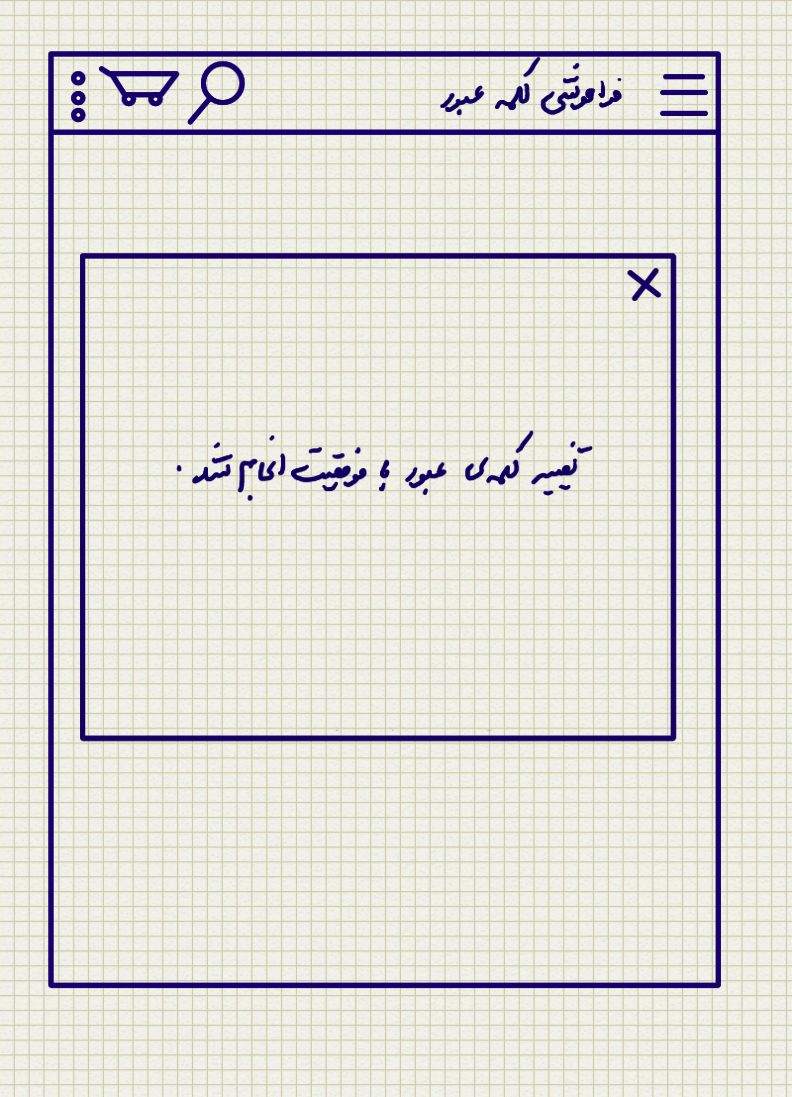 فراموشی کلمه عبور
تغییر کلمه‌ی عبور با موفقیت انجام شد.